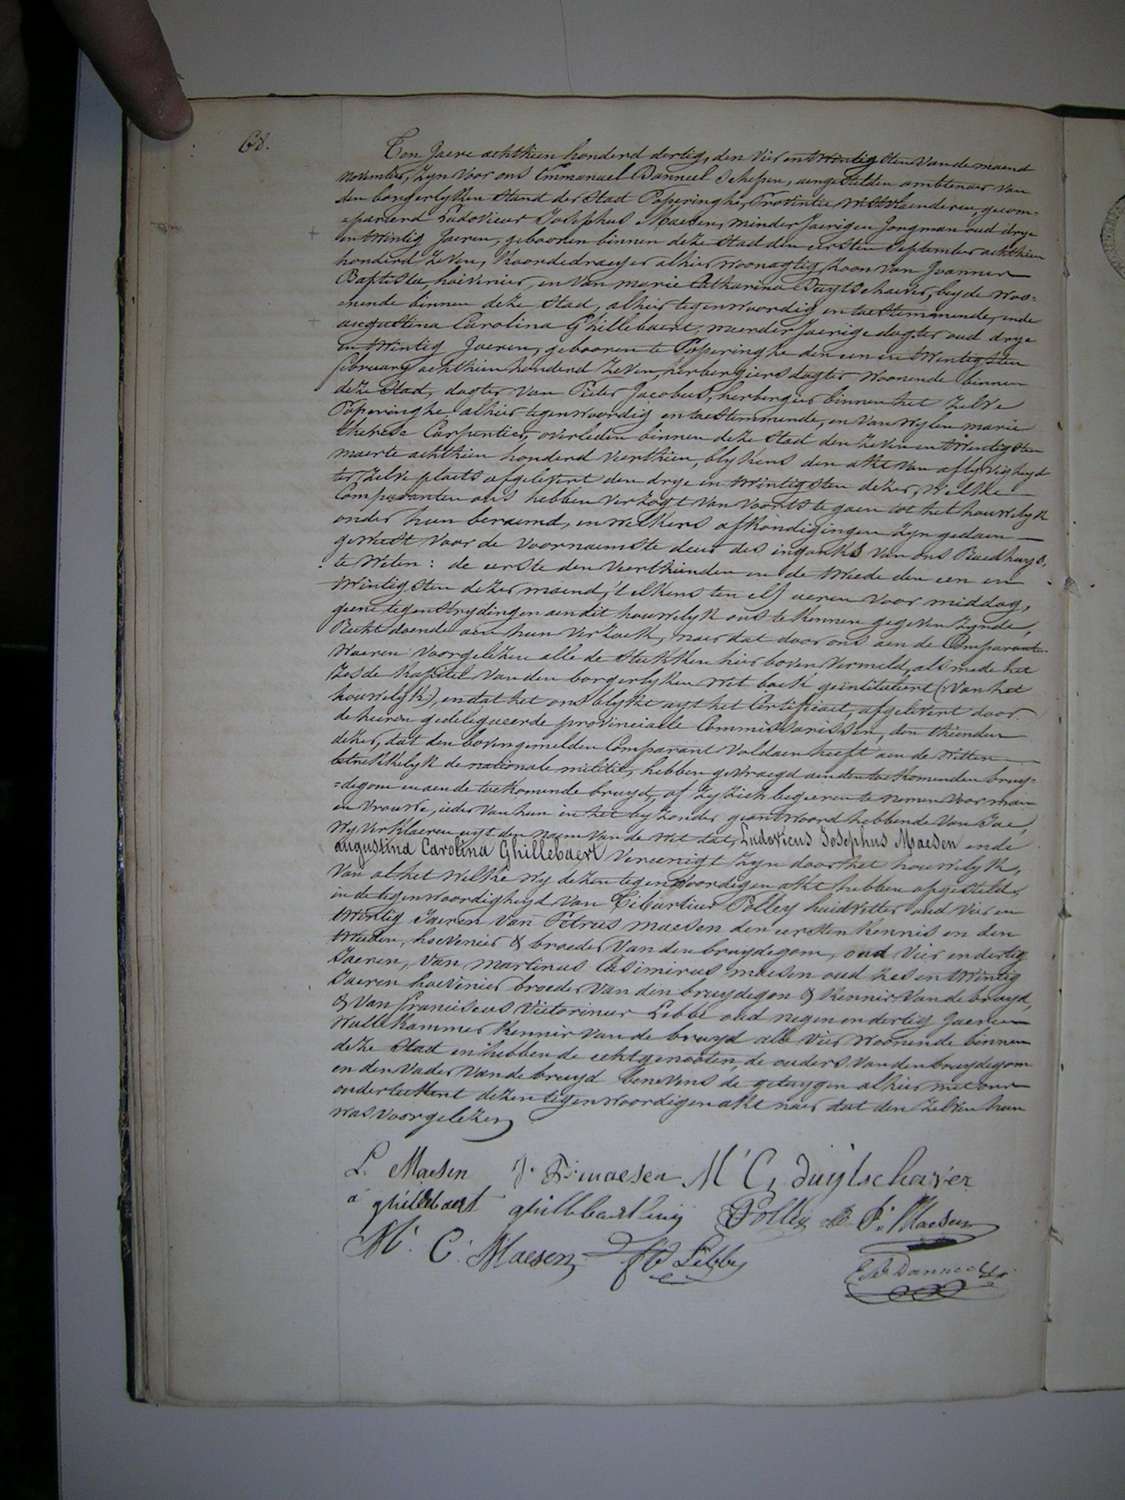 68.
Ten Jaere achthien honderd dertig, den vier en twintigsten van de maend
november, zyn voor ons Emmanuel Banneel Schepen, aengestelden ambtenaer van
den borgerlyken Stand der Stad Poperinghe, Provintie Westvlaenderen, gecom-
=pareerd Ludovicus Josephus Maesen, minderjaerigen Jongman oud drye
en twintig Jaeren, gebooren binnen deze Stad den eersten september achthien
honderd zeven, Koordedraeyer alhier woonagtig, zoon van Joannes
Baptiste, hovenier, en van marie Catharina Duytschaever, beyde woo-
=nende binnen deze Stad, alhier tegenwoordig en toestemmende, ende
augustina Carolina Ghillebaert, meerderjaerige dogter oud drye
en twintig Jaeren, gebooren te Poperinghe den een en twintigsten
february achthien honderd zeven, herbergiers dogter woonende binnen
deze Stad, dogter van Pieter Jacobus, herbergier binnen het zelve
Poperinghe, alhier tegenwoordig en toestemmende, en van wylen marie
Therese Carpentier, overleden binnen deze Stad den zeven en twintigsten
maerte achthien honderd veerthien, blykens den akt van aflyvigheyd
ter zelve plaets afgelevert den drye en twintigsten dezer, Welke
Comparanten ons hebben verzogt van voorts te gaen tot het houwelyk
onder hun beraemd, en welkers afkondigingen zyn gedaen
geweest voor de voornaemste deur des ingangs van ons Raedhuys,
te weten: de eerste den veerthienden en de tweede den een en
twintigsten dezer maend, 't elkens ten elf ueren voor middag,
geene tegenstrydingen aen dit houwelyk ons te kennen gegeven zynde,
Recht doende aen hun verzoek, naer dat door ons aen de Comparanten
waeren voorgelezen alle de stukken hier boven vermeld, als mede het
zesde Kapitel van den borgerlyken Wet boek geintituleert (van het
houwelyk), en dat het ons blykt uyt het Certificaet, afgelevert door
de heeren gedelegueerde provinciaele Commissarissen, den thienden
dezer, dat den bovengemelden Comparant voldaen heeft aen de Wetten
betrekkelyk de nationale militie, hebben gevraegd aen den toekomenden bruy-
=degom en aen de toekomende bruyd, of zy zich begeeren te nemen voor man
en vrouwe, ieder van hun in het byzonder geantwoord hebbende van Jae,
Wy verklaeren uyt den naem van de wet dat, Ludovicus Josephus Maesen ende
augustina Carolina Ghillebaert vereenigt zyn door het houwelyk,
van al het welke wy dezen tegenwoordigen akt hebben opgesteld,
in de tegenwoordigheyd van Tiburtius Polley huidvetter oud vier en
twintig Jaeren van Petrus maesen den eersten kennis en den
tweeden, hovenier & broeder van den bruydegom, oud vier en dertig
Jaeren, van martinus Casimirus maesen oud zes en twintig
Jaeren hovenier broeder van den bruydegom & kennis van de bruyd,
& van franciscus Victorinus Lebbe oud negen en dertig Jaeren
Wollekammer kennis van de bruyd alle vier woonende binnen
deze Stad en hebben de echtgenooten, de ouders van den bruydegom
en den vader van de bruyd benevens de getuygen alhier met ons
onderteekent dezen tegenwoordigen akt naer dat den zelven hun
was voorgelezen
L. Maesen J. B. maesen M' C, duytschaver
a ghillebaert ghillebaert Polley P. Maesen
M. C. Maesen Lebbe
E. Banneel